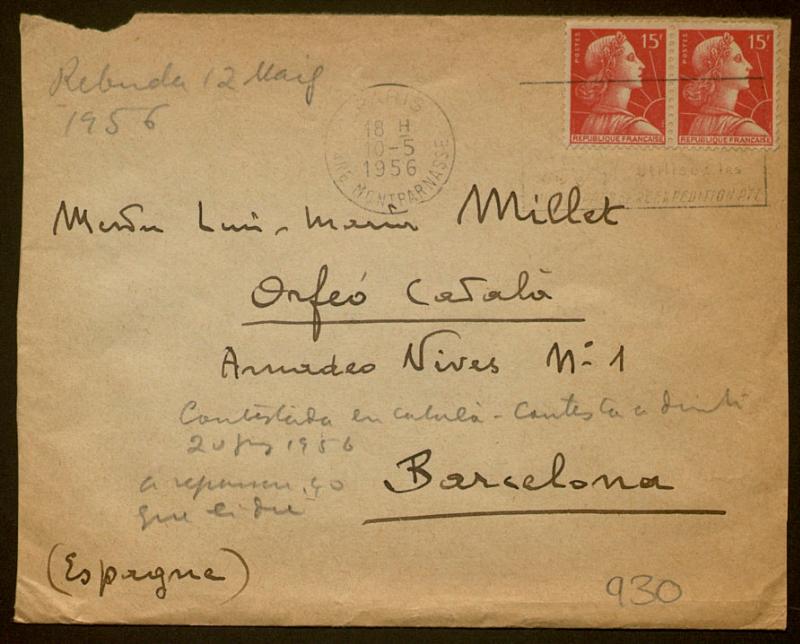 Rebuda 12 Maig
1956
PARIS
18 H
10-5
1956
RUE MONTPARNASSE
POSTES 15F
REPUBLIQUE FRANÇAISE
POSTES 15F
REPUBLIQUE FRANÇAISE
Utilisez les
REEXPEDITION PTT
Mestre Lluis-Maria Millet
Orfeó Català
Amadeo Vives Nº 1
Contestada en català - Contesta a
1956
que
Barcelona
(Espagne)
930